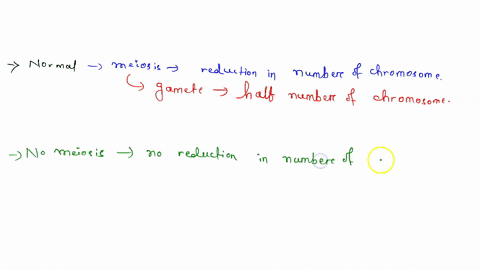 → Normal → meiosis → reduction in number of chromosome.
↳ gamete → half number of chromosome.
→ No meiosis → no reduction in numbers of